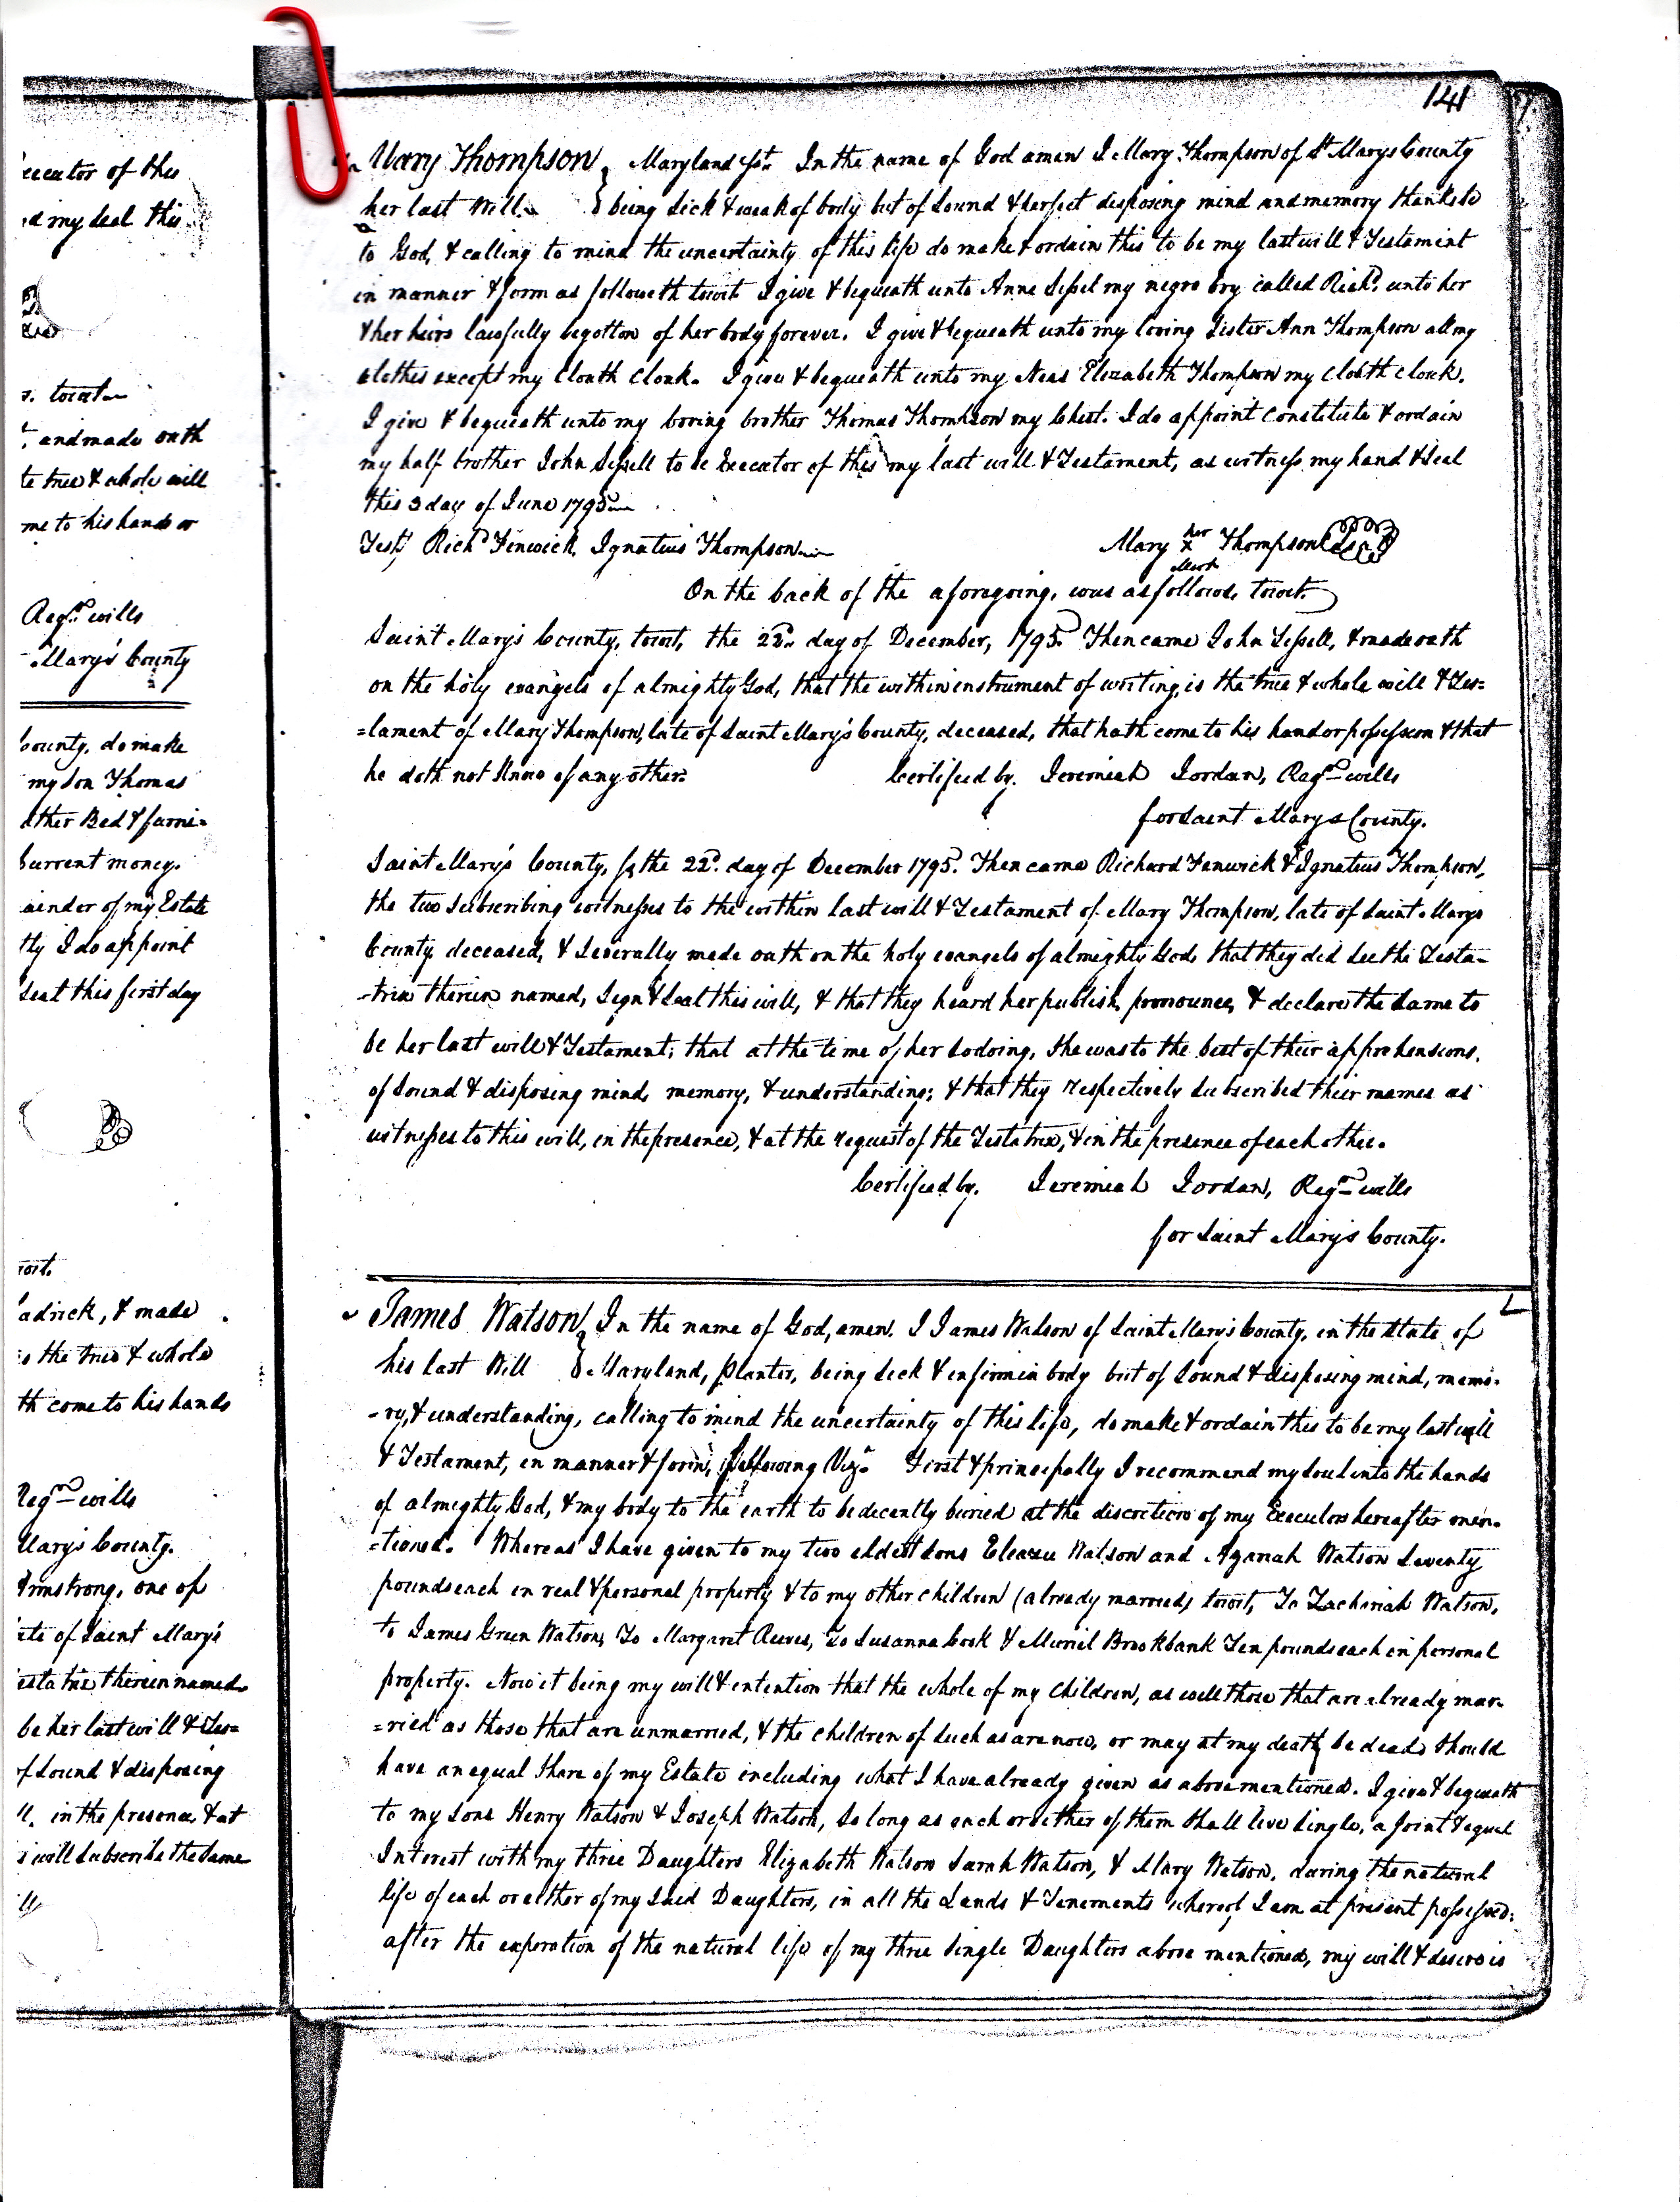 141
Mary Thompson, Maryland Sst. In the name of God amen I Mary Thompson of St Marys County
her last Will. being sick & weak of body but of sound & perfect disposing mind and memory thanks be
to God, & calling to mind the uncertainty of this life do make & ordain this to be my last will & Testament
in manner & form as followeth towit I give & bequeath unto Anne Sissel my negro boy called Richd. unto her
& her heirs lawfully begotton of her body forever. I give & bequeath unto my loving Sister Ann Thompson all my
clothes except my Cloath Cloak. I give & bequeath unto my Neas Elizabeth Thompson my Cloath Cloak.
I give & bequeath unto my loving brother Thomas Thompson my Chest. I do appoint Constitute & ordain
my half brother John Sissell to be Executor of this my last will & Testament, as witness my hand & Seal
this 3 day of June 1795
Test, Richd Fenwick, Ignatius Thompson
Mary her x Mark Thompson Seal
On the back of the aforegoing, was as follows, towit.
Saint Mary's County, towit, the 22d. day of December, 1795. Then came John Sissell, & made oath
on the holy evangels of almighty God, that the within instrument of writing, is the true & whole will & Tes=
=tament of Mary Thompson, late of Saint Mary's County, deceased, that hath come to his hand or possession & that
he doth not Know of any other.
Certified by. Jeremiah Jordan, Regr. wills
for Saint Marys County.
Saint Mary's County, Ss the 22d. day of December 1795. Then came Richard Fenwick & Ignatius Thompson,
the two Subscribing witnesses to the within last will & Testament of Mary Thompson, late of Saint Marys
County deceased, & Severally made oath on the holy evangels of almighty God, that they did see the Testa-
-trix therein named, Sign & Seal this will, & that they heard her publish, pronounce, & declare the Same to
be her last will & Testament; that at the time of her so doing, She was to the best of their apprehensions,
of Sound & disposing mind, memory, & understanding; & that they respectively Subscribed their names as
witnesses to this will, in the presence, & at the request of the Testatrix, & in the presence of each other.
Certified by. Jeremiah Jordan, Regr. wills
for Saint Mary's County.
James Watson, In the name of God, amen. I James Watson of Saint Mary's County, in the State of
his last Will Maryland, Planter, being Sick & infirm in body but of Sound & disposing mind, memo-
-ry, & understanding, calling to mind the uncertainty of this life, do make & ordain this to be my last will
& Testament, in manner & form, following Viz. First & principally I recommend my Soul into the hands
of almighty God, & my body to the earth to be decently buried at the discretion of my Executors hereafter men-
-tioned. Whereas I have given to my two eldest Sons Eleazer Watson and Azariah Watson Seventy
pounds each in real & personal property & to my other Children (already married) towit, To Zachariah Watson,
to James Green Watson, To Margaret Reeves, To Susanna Cook & Muriel Brookbank Ten pounds each in personal
property. Now it being my will & intention that the whole of my Children, as well those that are already mar-
=ried as those that are unmarried, & the children of Such as are now, or may at my death, be dead, Should
have an equal Share of my Estate including what I have already given as above mentioned. I give & bequeath
to my Sons Henry Watson & Joseph Watson, So long as each or either of them Shall live Single, a joint & equal
Interest with my three Daughters Elizabeth Watson Sarah Watson, & Mary Watson, during the natural
life of each or either of my Said Daughters, in all the Lands & Tenements whereof I am at present possessed;
after the experation of the natural life of my three Single Daughters above mentioned, my will & desire is
ecutor of this
d my Seal this
s. towit
, and made oath
te true & whole will
me to his hands or
Regr. wills
Mary's County
County, do make
my Son Thomas
ather Bed & furni=
Current money.
ainder of my Estate
tly I do appoint
Seal this first day
wit.
adrick, & made
is the true & whole
th come to his hands
Regr. wills
Mary's County.
Armstrong, one of
ate of Saint Mary's
estatrix therein named
be her last will & Tes=
of Sound & disposing
ll, in the presence, & at
s will Subscribe the Same